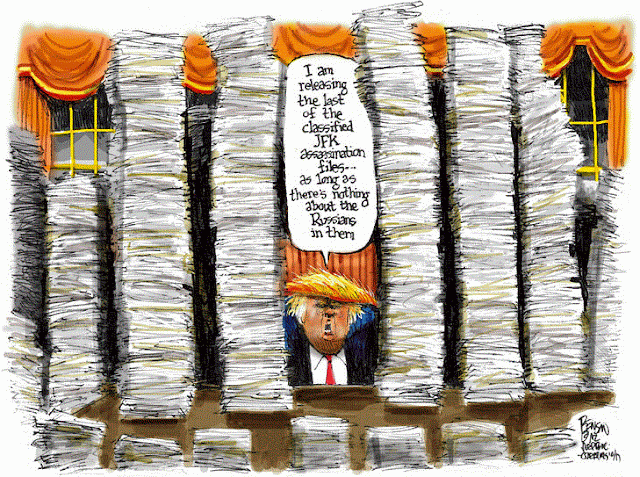 I am
releasing
the last
of the
classified
JFK
assassination
files...
as long as
there's nothing
about the
Russians
in them
BENSON